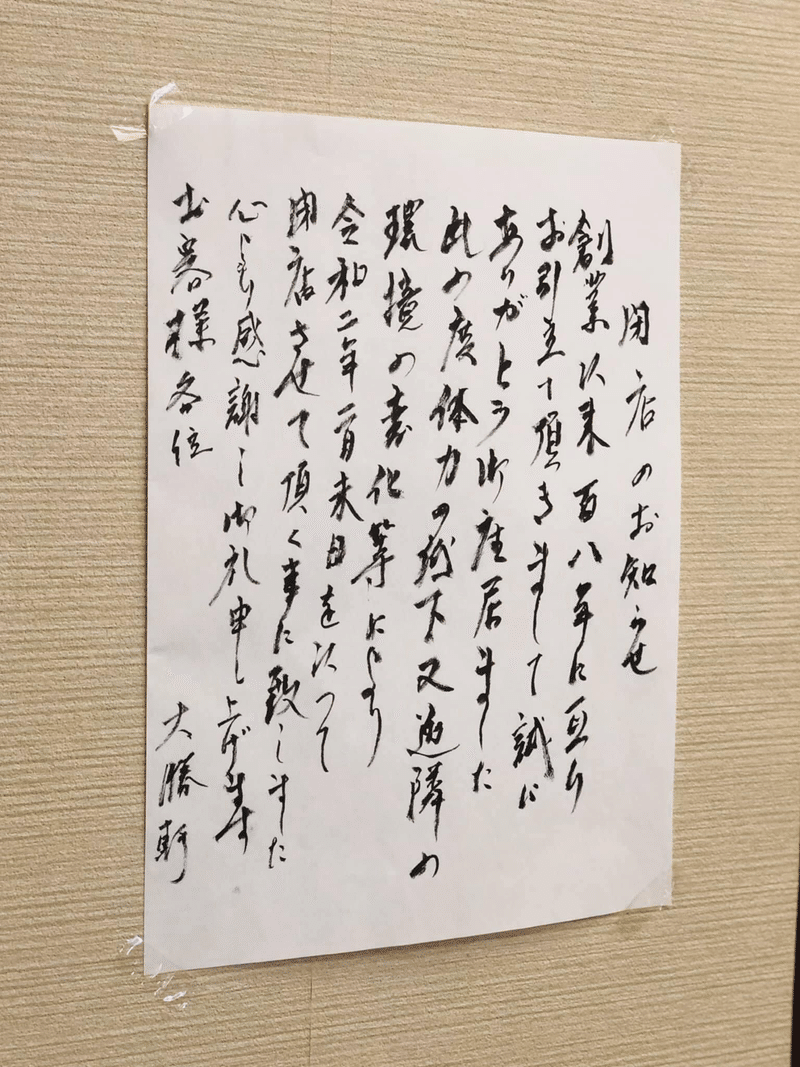 閉店のお知らせ
創業以来百八年に亘り
お引立て頂きまして誠に
ありがとう御座居ました
此の度体力の低下又近隣の
環境の変化等により
令和二年二月末日を以って
閉店させて頂く事に致しました
心より感謝し御礼申し上げます
お客様各位
大勝軒